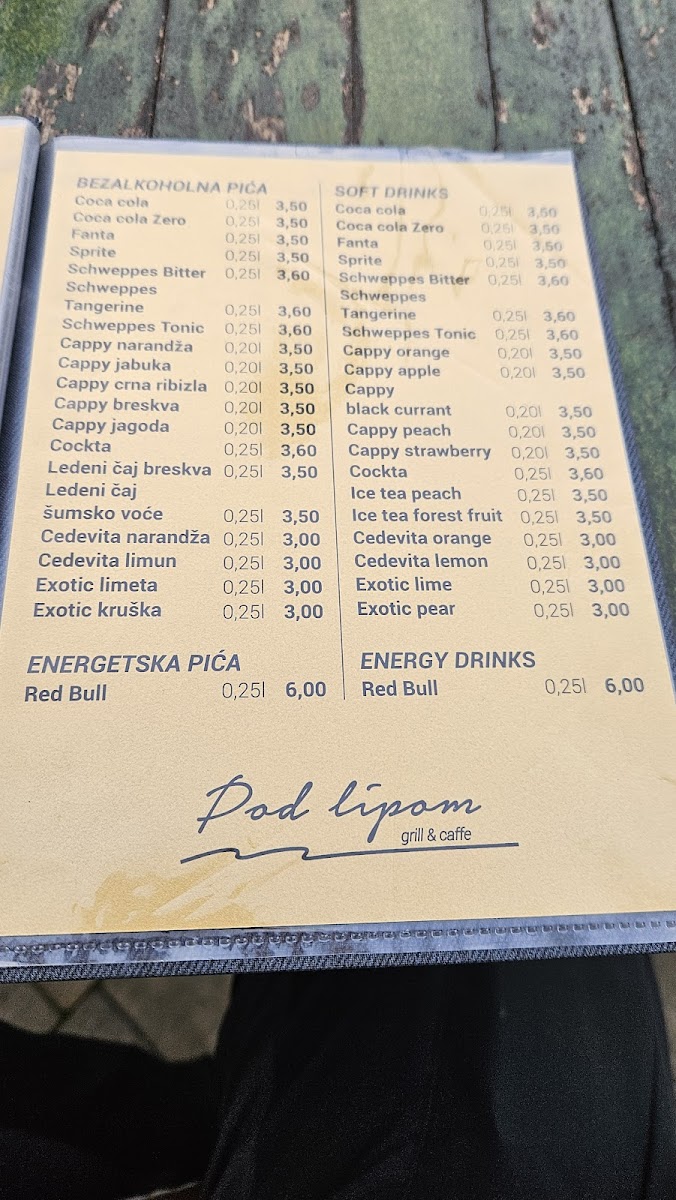 BEZALKOHOLNA PIĆA
Coca cola 0,25l 3,50
Coca cola Zero 0,25l 3,50
Fanta 0,25l 3,50
Sprite 0,25l 3,50
Schweppes Bitter 0,25l 3,60
Schweppes
Tangerine 0,25l 3,60
Schweppes Tonic 0,25l 3,60
Cappy narandža 0,20l 3,50
Cappy jabuka 0,20l 3,50
Cappy crna ribizla 0,20l 3,50
Cappy breskva 0,20l 3,50
Cappy jagoda 0,20l 3,50
Cockta 0,25l 3,60
Ledeni čaj breskva 0,25l 3,50
Ledeni čaj
šumsko voće 0,25l 3,50
Cedevita narandža 0,25l 3,00
Cedevita limun 0,25l 3,00
Exotic limeta 0,25l 3,00
Exotic kruška 0,25l 3,00
ENERGETSKA PIĆA
Red Bull 0,25l 6,00
SOFT DRINKS
Coca cola 0,25l 3,50
Coca cola Zero 0,25l 3,50
Fanta 0,25l 3,50
Sprite 0,25l 3,50
Schweppes Bitter 0,25l 3,60
Schweppes
Tangerine 0,25l 3,60
Schweppes Tonic 0,25l 3,60
Cappy orange 0,20l 3,50
Cappy apple 0,20l 3,50
Cappy
black currant 0,20l 3,50
Cappy peach 0,20l 3,50
Cappy strawberry 0,20l 3,50
Cockta 0,25l 3,60
Ice tea peach 0,25l 3,50
Ice tea forest fruit 0,25l 3,50
Cedevita orange 0,25l 3,00
Cedevita lemon 0,25l 3,00
Exotic lime 0,25l 3,00
Exotic pear 0,25l 3,00
ENERGY DRINKS
Red Bull 0,25l 6,00
Pod lipom
grill & caffe